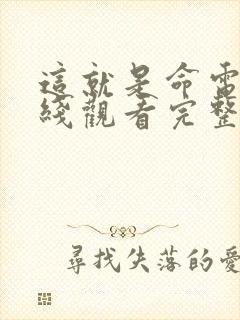 這就是命電
綫觀看完整
尋找失落的愛